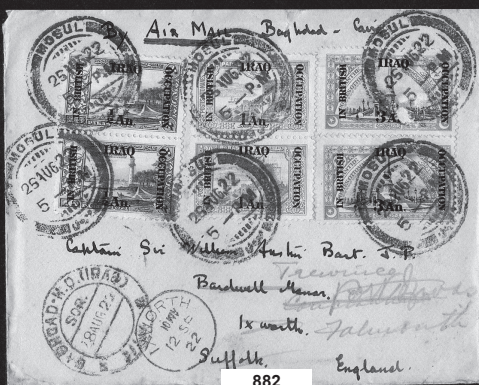 By Air Mail Baghdad - Cairo
MOSUL
25 AUG 22
5 - P.M.
MOSUL
AUG 22
5 - P.M.
MOSUL
25 AUG 22
5
IRAQ
IN BRITISH
OCCUPATION
½ An.
IRAQ
IN BRITISH
OCCUPATION
1 An.
IRAQ
IN BRITISH
OCCUPATION
3 An.
MOSUL
25 AUG 22
5
IRAQ
IN BRITISH
OCCUPATION
½ An.
IRAQ
IN BRITISH
OCCUPATION
1 An.
IRAQ
IN BRITISH
OCCUPATION
3 An.
25 AUG 22
5
AUG 22
5
Captain Sir William Austin Bart. J.P.
Bardwell Manor.
Ixworth.
Suffolk. England.
Falmouth
BAGHDAD-H.O. (IRAQ)
SOR.
28 AUG 22
IXWORTH
12 SE
22
882